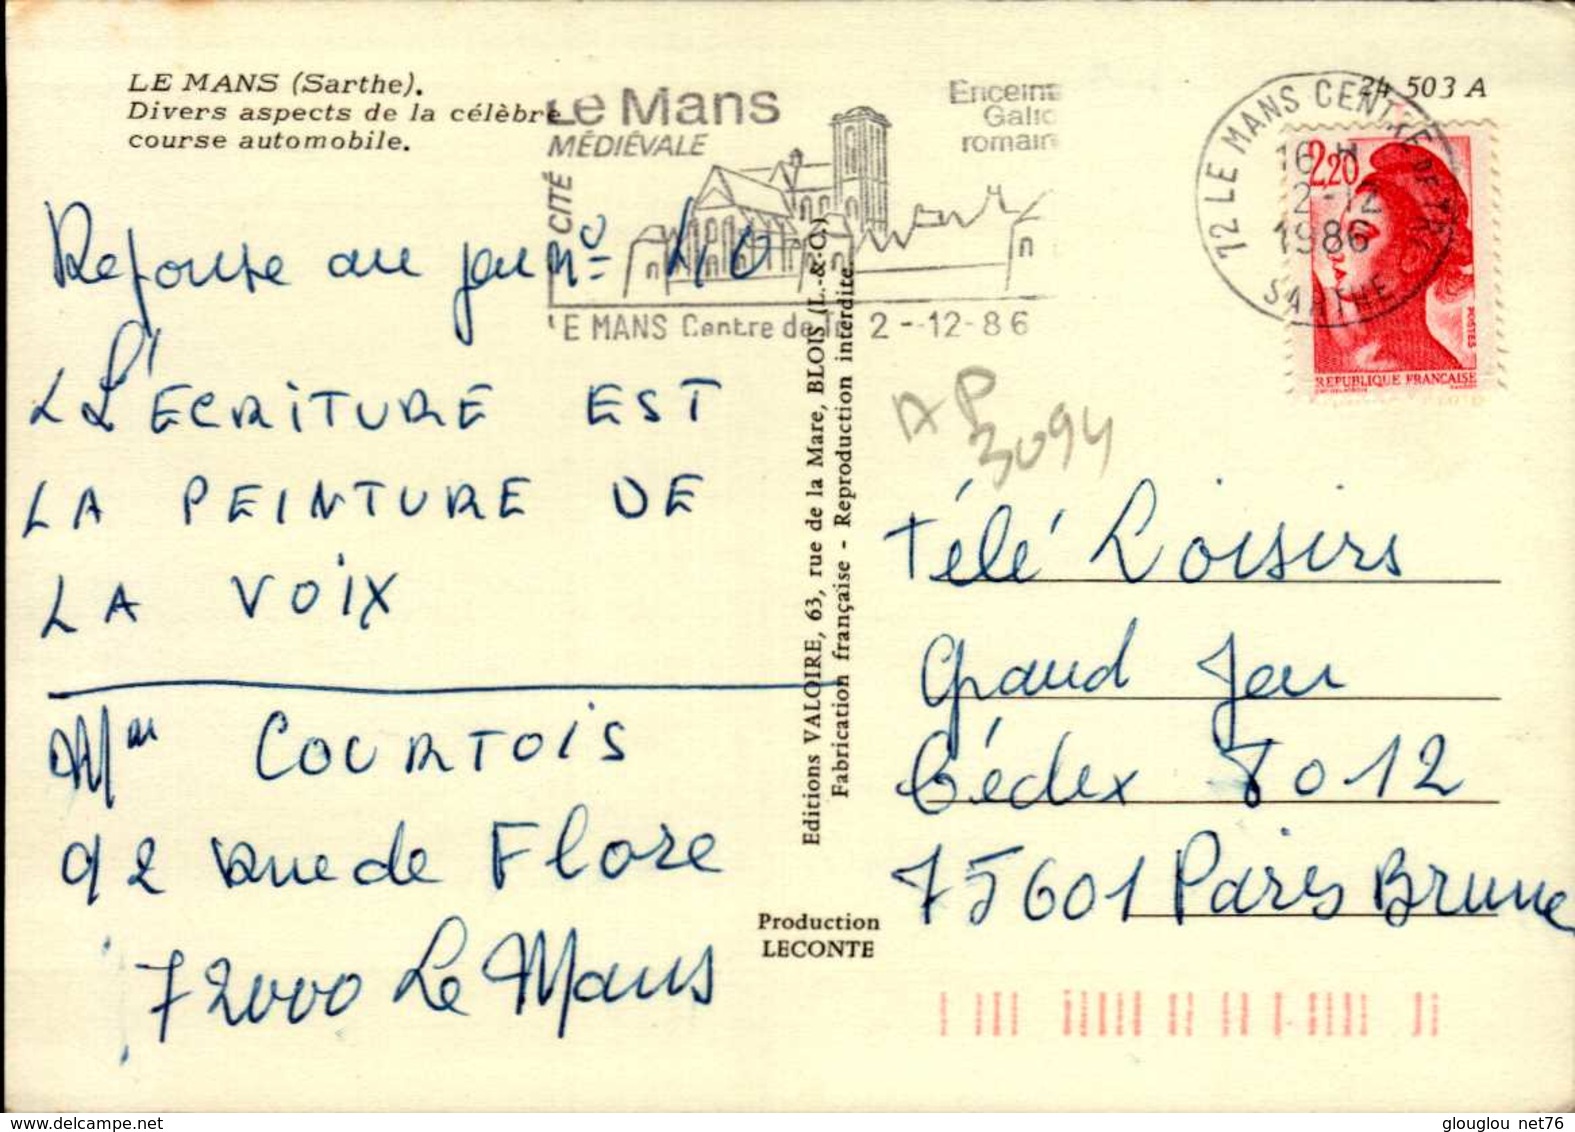 LE MANS (Sarthe).
Divers aspects de la célèbre
course automobile.
Le Mans
MÉDIÉVALE
CITÉ
Enceint
Gallo
romain
LE MANS Centre de Tri 2-12-86
24 503 A
72 LE MANS CENTRE DE TRI
16 H
2-12
1986
SARTHE
2,20
POSTES
REPUBLIQUE FRANÇAISE
Reponse au jeu n° 40
L'ECRITURE EST
LA PEINTURE DE
LA VOIX
Mme COURTOIS
92 rue de Flore
72000 Le Mans
Editions VALOIRE, 63, rue de la Mare, BLOIS (L.-&-C.)
Fabrication française - Reproduction interdite.
Production
LECONTE
AP
3094
Télé Loisirs
Grand Jeu
Cédex 8012
75601 Paris Brune
glouglou net76